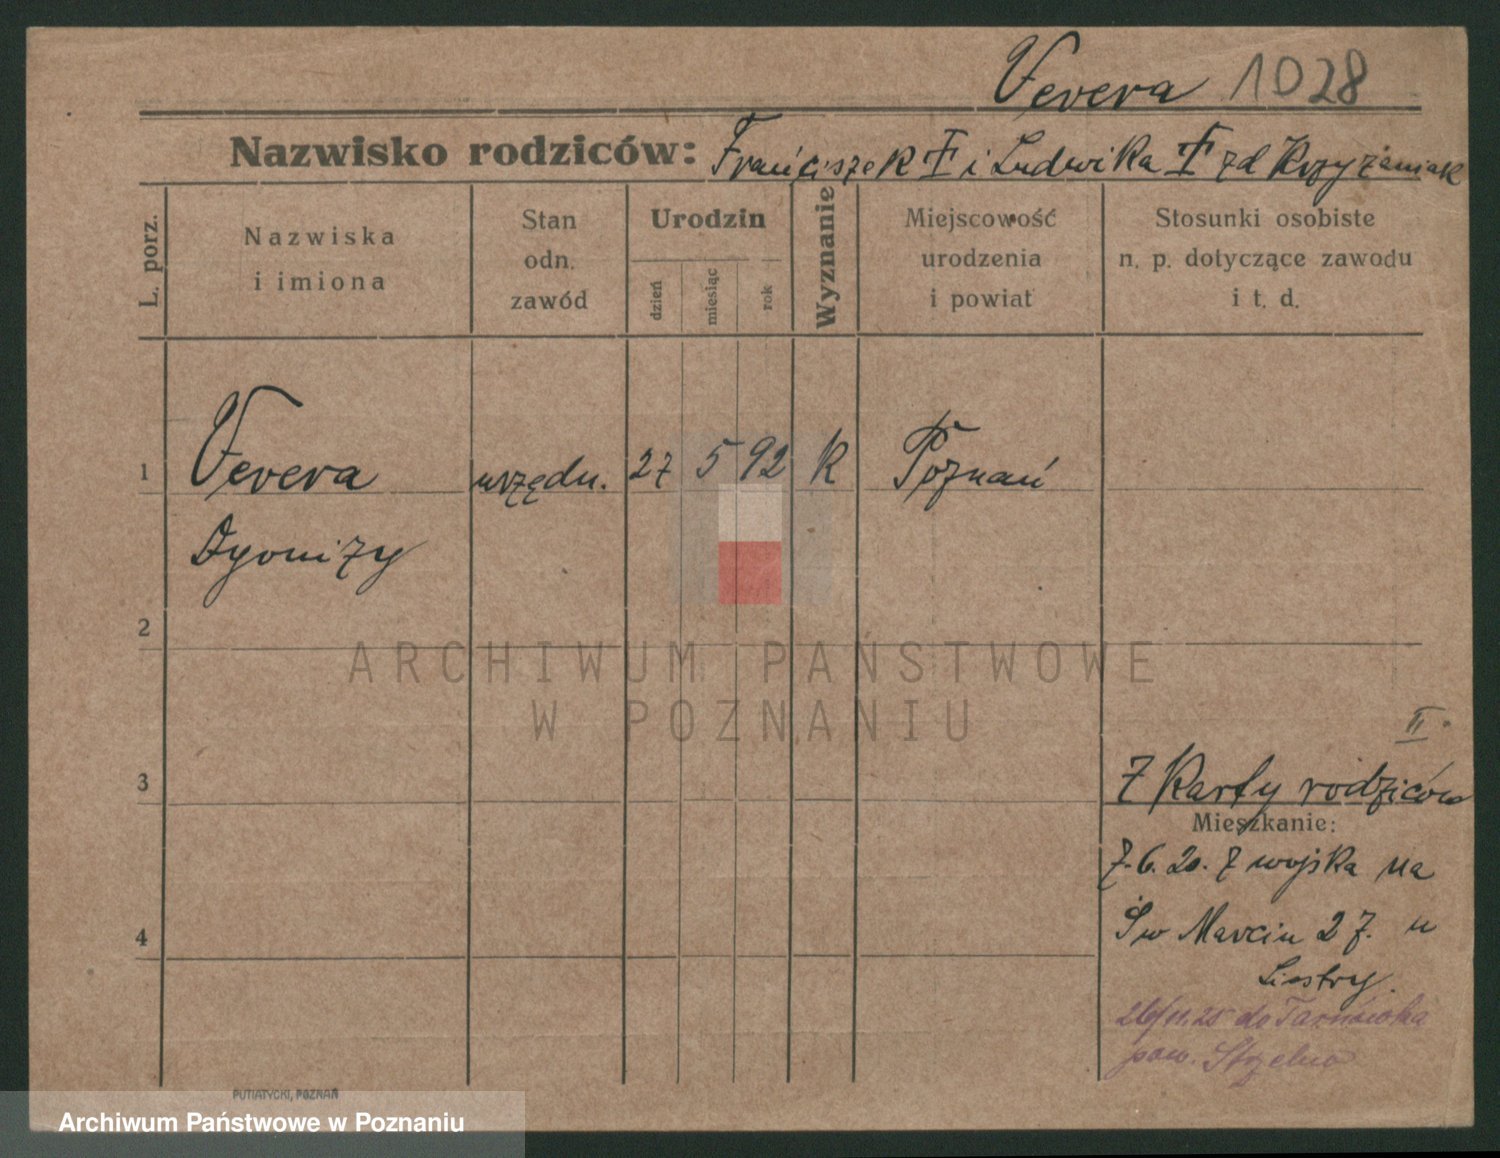 Verera 1028
Nazwisko rodziców: Franciszek † i Ludwika † zd Krzyżaniak
L. porz.
Nazwiska
i imiona
Stan
odn.
zawód
Urodzin
dzień
miesiąc
rok
Wyznanie
Miejscowość
urodzenia
i powiat
Stosunki osobiste
n. p. dotyczące zawodu
i t. d.
1
Verera urzędn. 27 5 92 K Poznań
Dyonizy
2
ARCHIWUM PAŃSTWOWE
W POZNANIU
II
3
Z Karty rodziców
Mieszkanie:
7.6.20. z wojska na
Św Marcin 27. u
4
Siostry.
26/11.25 do Tarnówka
pow. Strzelno
PUTIATYCKI, POZNAŃ
Archiwum Państwowe w Poznaniu